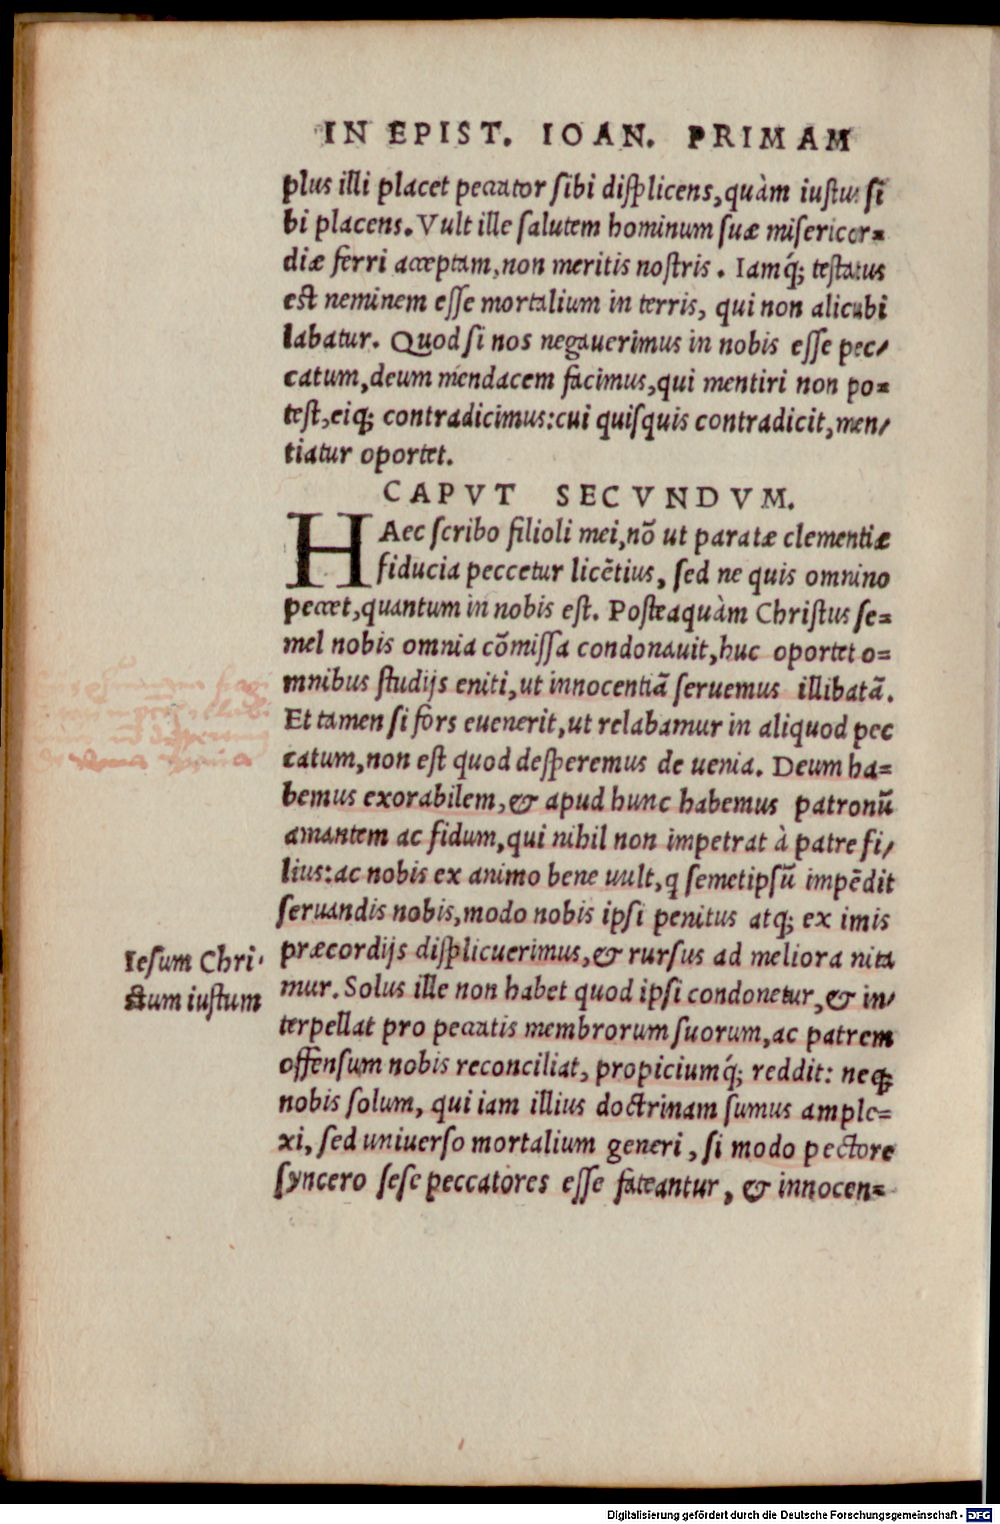 IN EPIST. IOAN. PRIMAM
plus illi placet peccator sibi displicens, quàm iustus si
bi placens. Vult ille salutem hominum suæ misericor=
diæ ferri acceptam, non meritis nostris. Iamq́; testatus
est neminem esse mortalium in terris, qui non alicubi
labatur. Quod si nos negauerimus in nobis esse pec/
catum, deum mendacem facimus, qui mentiri non po=
test, eiq; contradicimus: cui quisquis contradicit, men/
tiatur oportet.
CAPVT SECVNDVM.
HAec scribo filioli mei, nō ut paratæ clementiæ
fiducia peccetur licētius, sed ne quis omnino
peccet, quantum in nobis est. Posteaquàm Christus se=
mel nobis omnia cōmissa condonauit, huc oportet o=
mnibus studijs eniti, ut innocentiā seruemus illibatā.
Et tamen si fors euenerit, ut relabamur in aliquod pec
catum, non est quod desperemus de uenia. Deum ha=
bemus exorabilem, & apud hunc habemus patronū
amantem ac fidum, qui nihil non impetrat à patre fi/
lius: ac nobis ex animo bene uult, q semetipsū impēdit
seruandis nobis, modo nobis ipsi penitus atq; ex imis
præcordijs displicuerimus, & rursus ad meliora nita
mur. Solus ille non habet quod ipsi condonetur, & in/
terpellat pro peccatis membrorum suorum, ac patrem
offensum nobis reconciliat, propiciumq́; reddit: neq;
nobis solum, qui iam illius doctrinam sumus ample=
xi, sed uniuerso mortalium generi, si modo pectore
syncero sese peccatores esse fateantur, & innocen=
Iesum Chri-
stum iustum
Digitalisierung gefördert durch die Deutsche Forschungsgemeinschaft - DFG